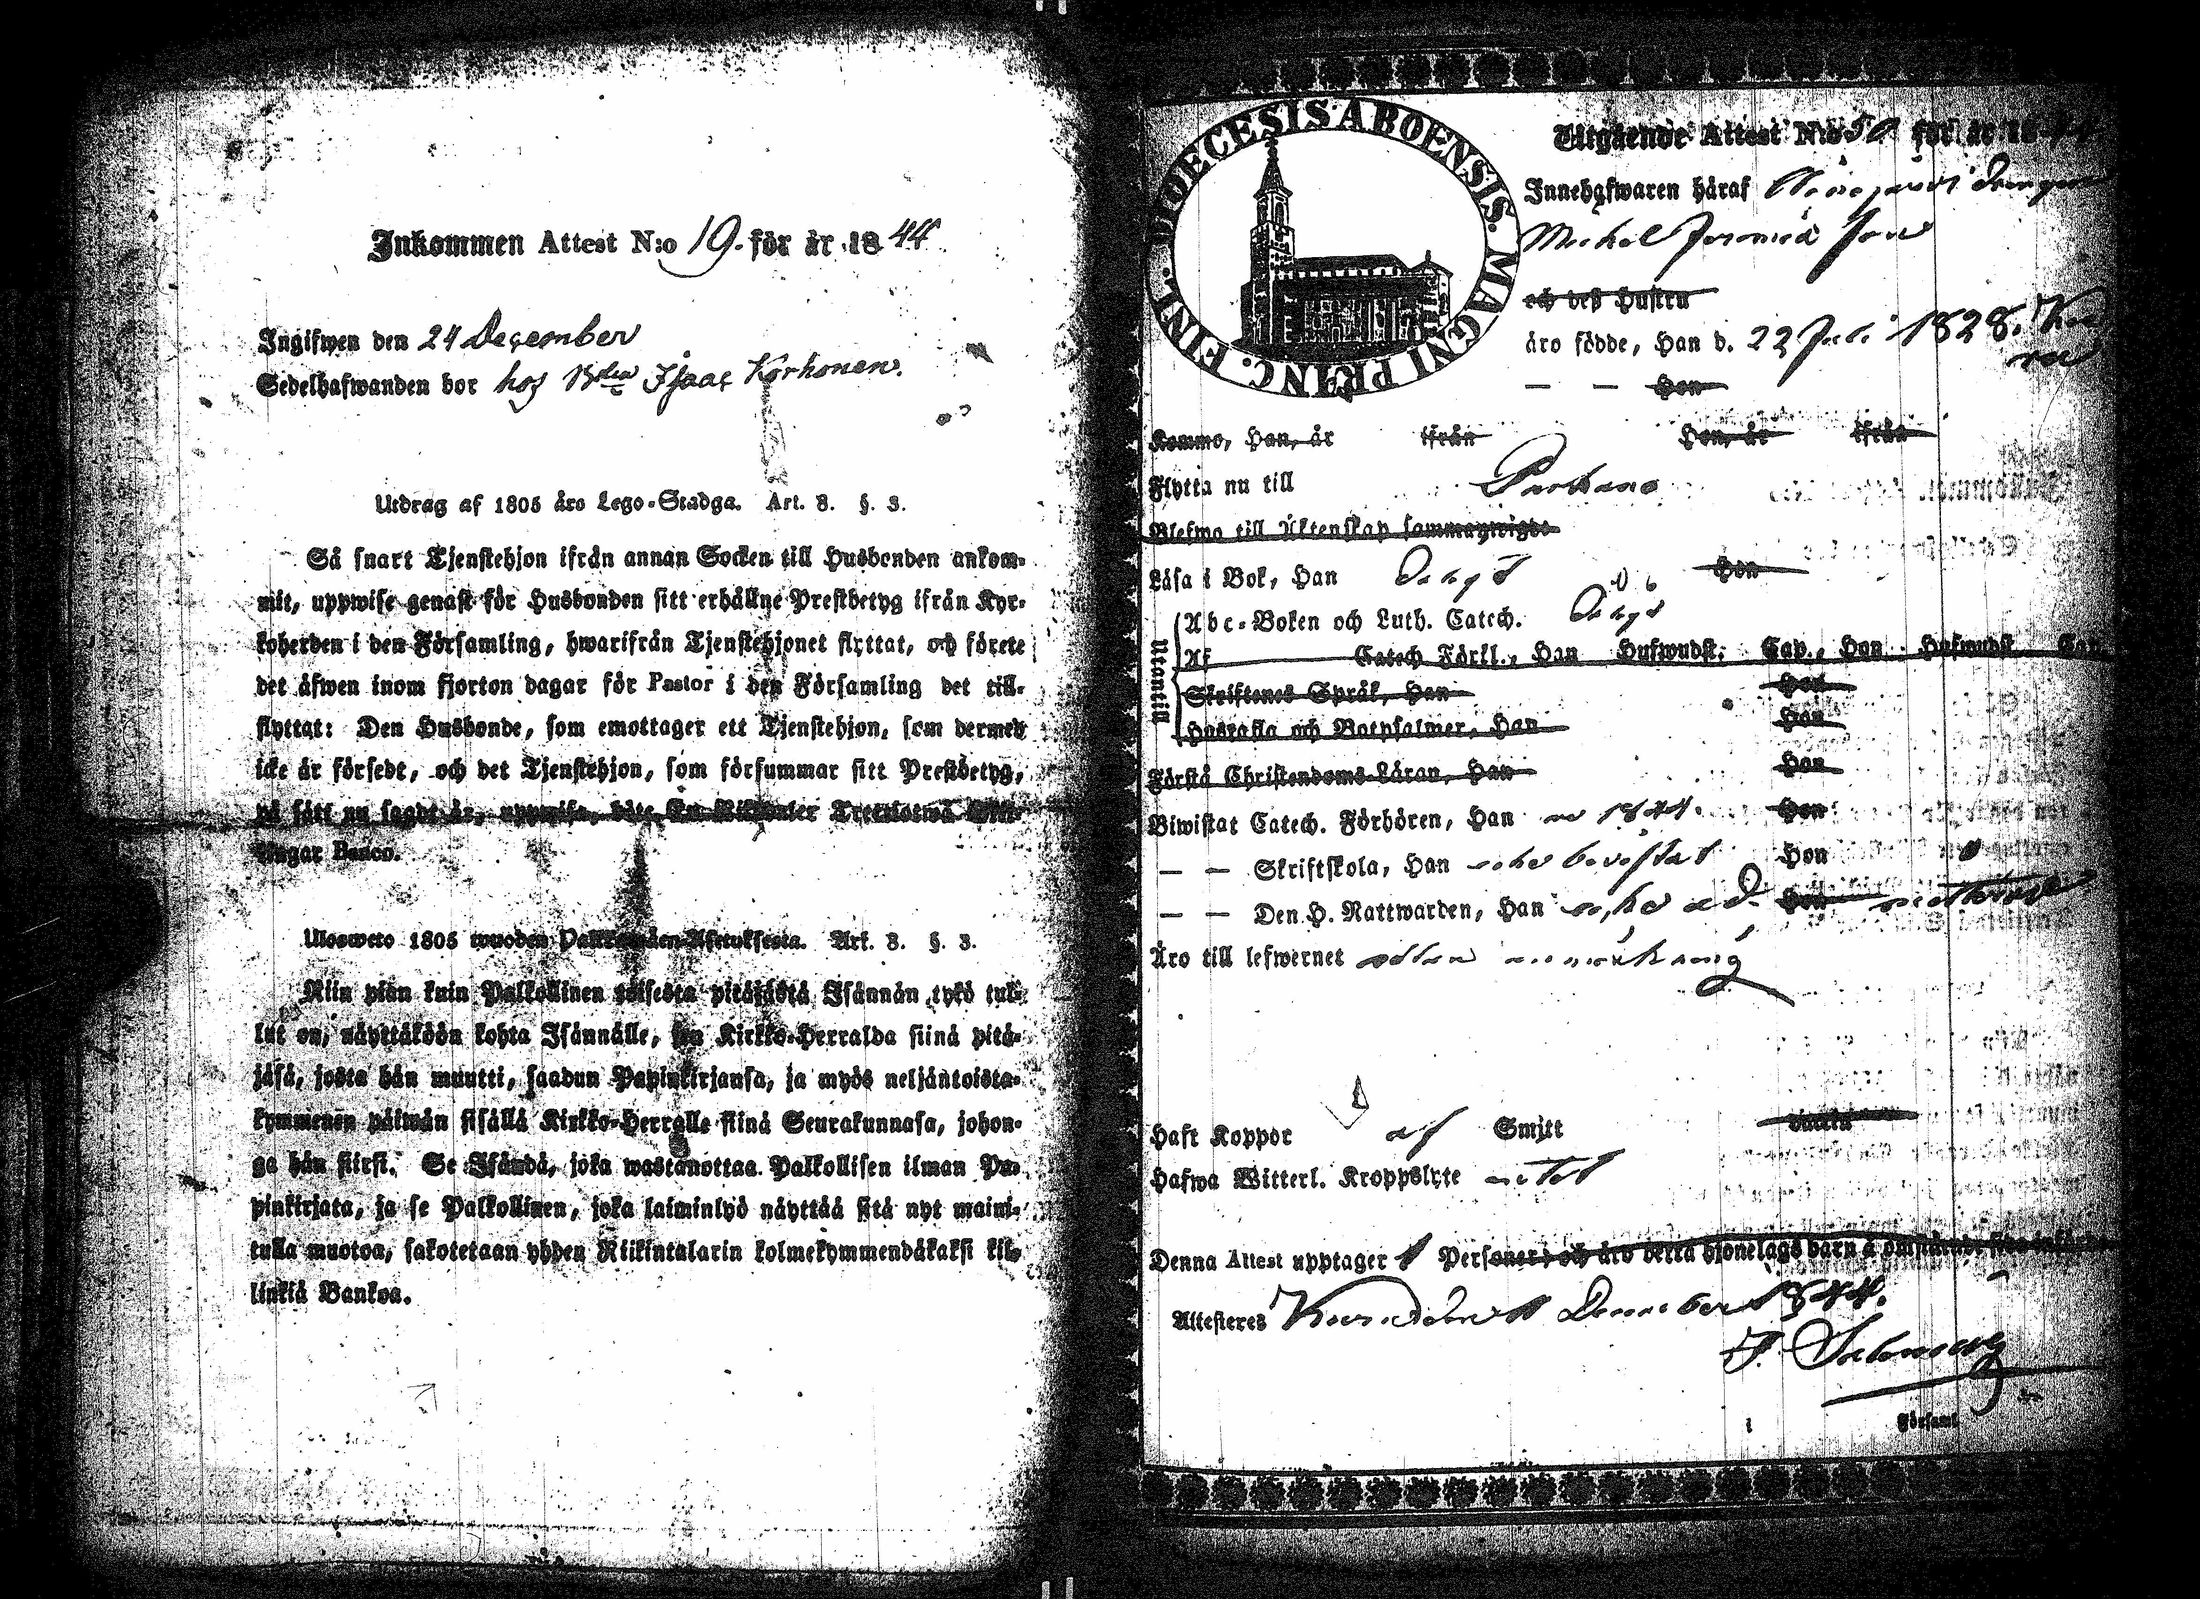 Inkommen Attest N:o 19. för år 1844
Ingifwen den 24 December
Sedelhafwanden bor hos Isaac Korhonen.
Utdrag af 1805 års Lego-Stadga. Art. 8. §. 3.
Så snart Tjenstehjon ifrån annan Socken till Husbonden ankom-
mit, uppwise genast för Husbonden sitt erhållne Prestbetyg ifrån Kyr-
koherden i den Församling, hwarifrån Tjenstehjonet flyttat, och förete
det äfwen inom fjorton dagar för Pastor i den Församling det till-
flyttat: Den Husbonde, som emottager ett Tjenstehjon, som dermed
icke är försedt, och det Tjenstehjon, som försummar sitt Prestbetyg,
på sätt nu sagdt är, uppwisa, böte En Riksdaler Trettiotwå Skil-
lingar Banco.
Ulosweto 1805 wuoden Palkkawäen-Asetuksesta. Art. 8. §. 3.
Niin pian kuin Palkollinen toisesta pitäjästä Isännän tykö tul-
lut on, näyttäköön kohta Isännälle, sen Kirkko-Herralda siinä pitä-
jäsä, josta hän muutti, saadun Papinkirjansa, ja myös neljäntoista-
kymmenen päiwän sisällä Kirkko-Herralle siinä Seurakunnasa, johon-
ga hän siirsi. Se Isändä, joka wastanottaa Palkollisen ilman Pa-
pinkirjata, ja se Palkollinen, joka laiminlyö näyttää sitä nyt maini-
tulla muotoa, sakotetaan yhden Riikintalarin kolmekymmendäkaksi kil-
linkiä Bankoa.
DIOECESIS ABOENSIS. MAGNI PRINC. FINL.
Utgående Attest N:o 50 för år 18
Innehafwaren häraf
Michel Jeremias
och dess Hustru
äro födde, Han d. 22 Juli 1828.
— — Hon
Komma, Han, år ifrån Hon, år ifrån
Flytta nu till
Blefwo till Äktenskap sammanwigde
Läsa i Bok, Han Hon
Utantill
Abc-Boken och Luth. Catech.
Af Catech Förkl., Han Hufwudst. Cap., Hon Hufwudst. Cap.
Skriftenes Språk, Han Hon
Hustafla och Botpsalmer, Han Hon
Förstå Christendoms-Läran, Han Hon
Biwistat Catech. Förhören, Han 1844. Hon
— — Skriftskola, Han bevistat Hon
— — Den H. Nattwarden, Han Hon
Äro till lefwernet utan anmärkning
Haft Koppor af Smitt
Hafwa Witterl. Kroppslyte intet
Denna Attest upptager 1 Personer; och äro detta hjonelags barn å omstående sida
Attesteres December 1844.
Församl.